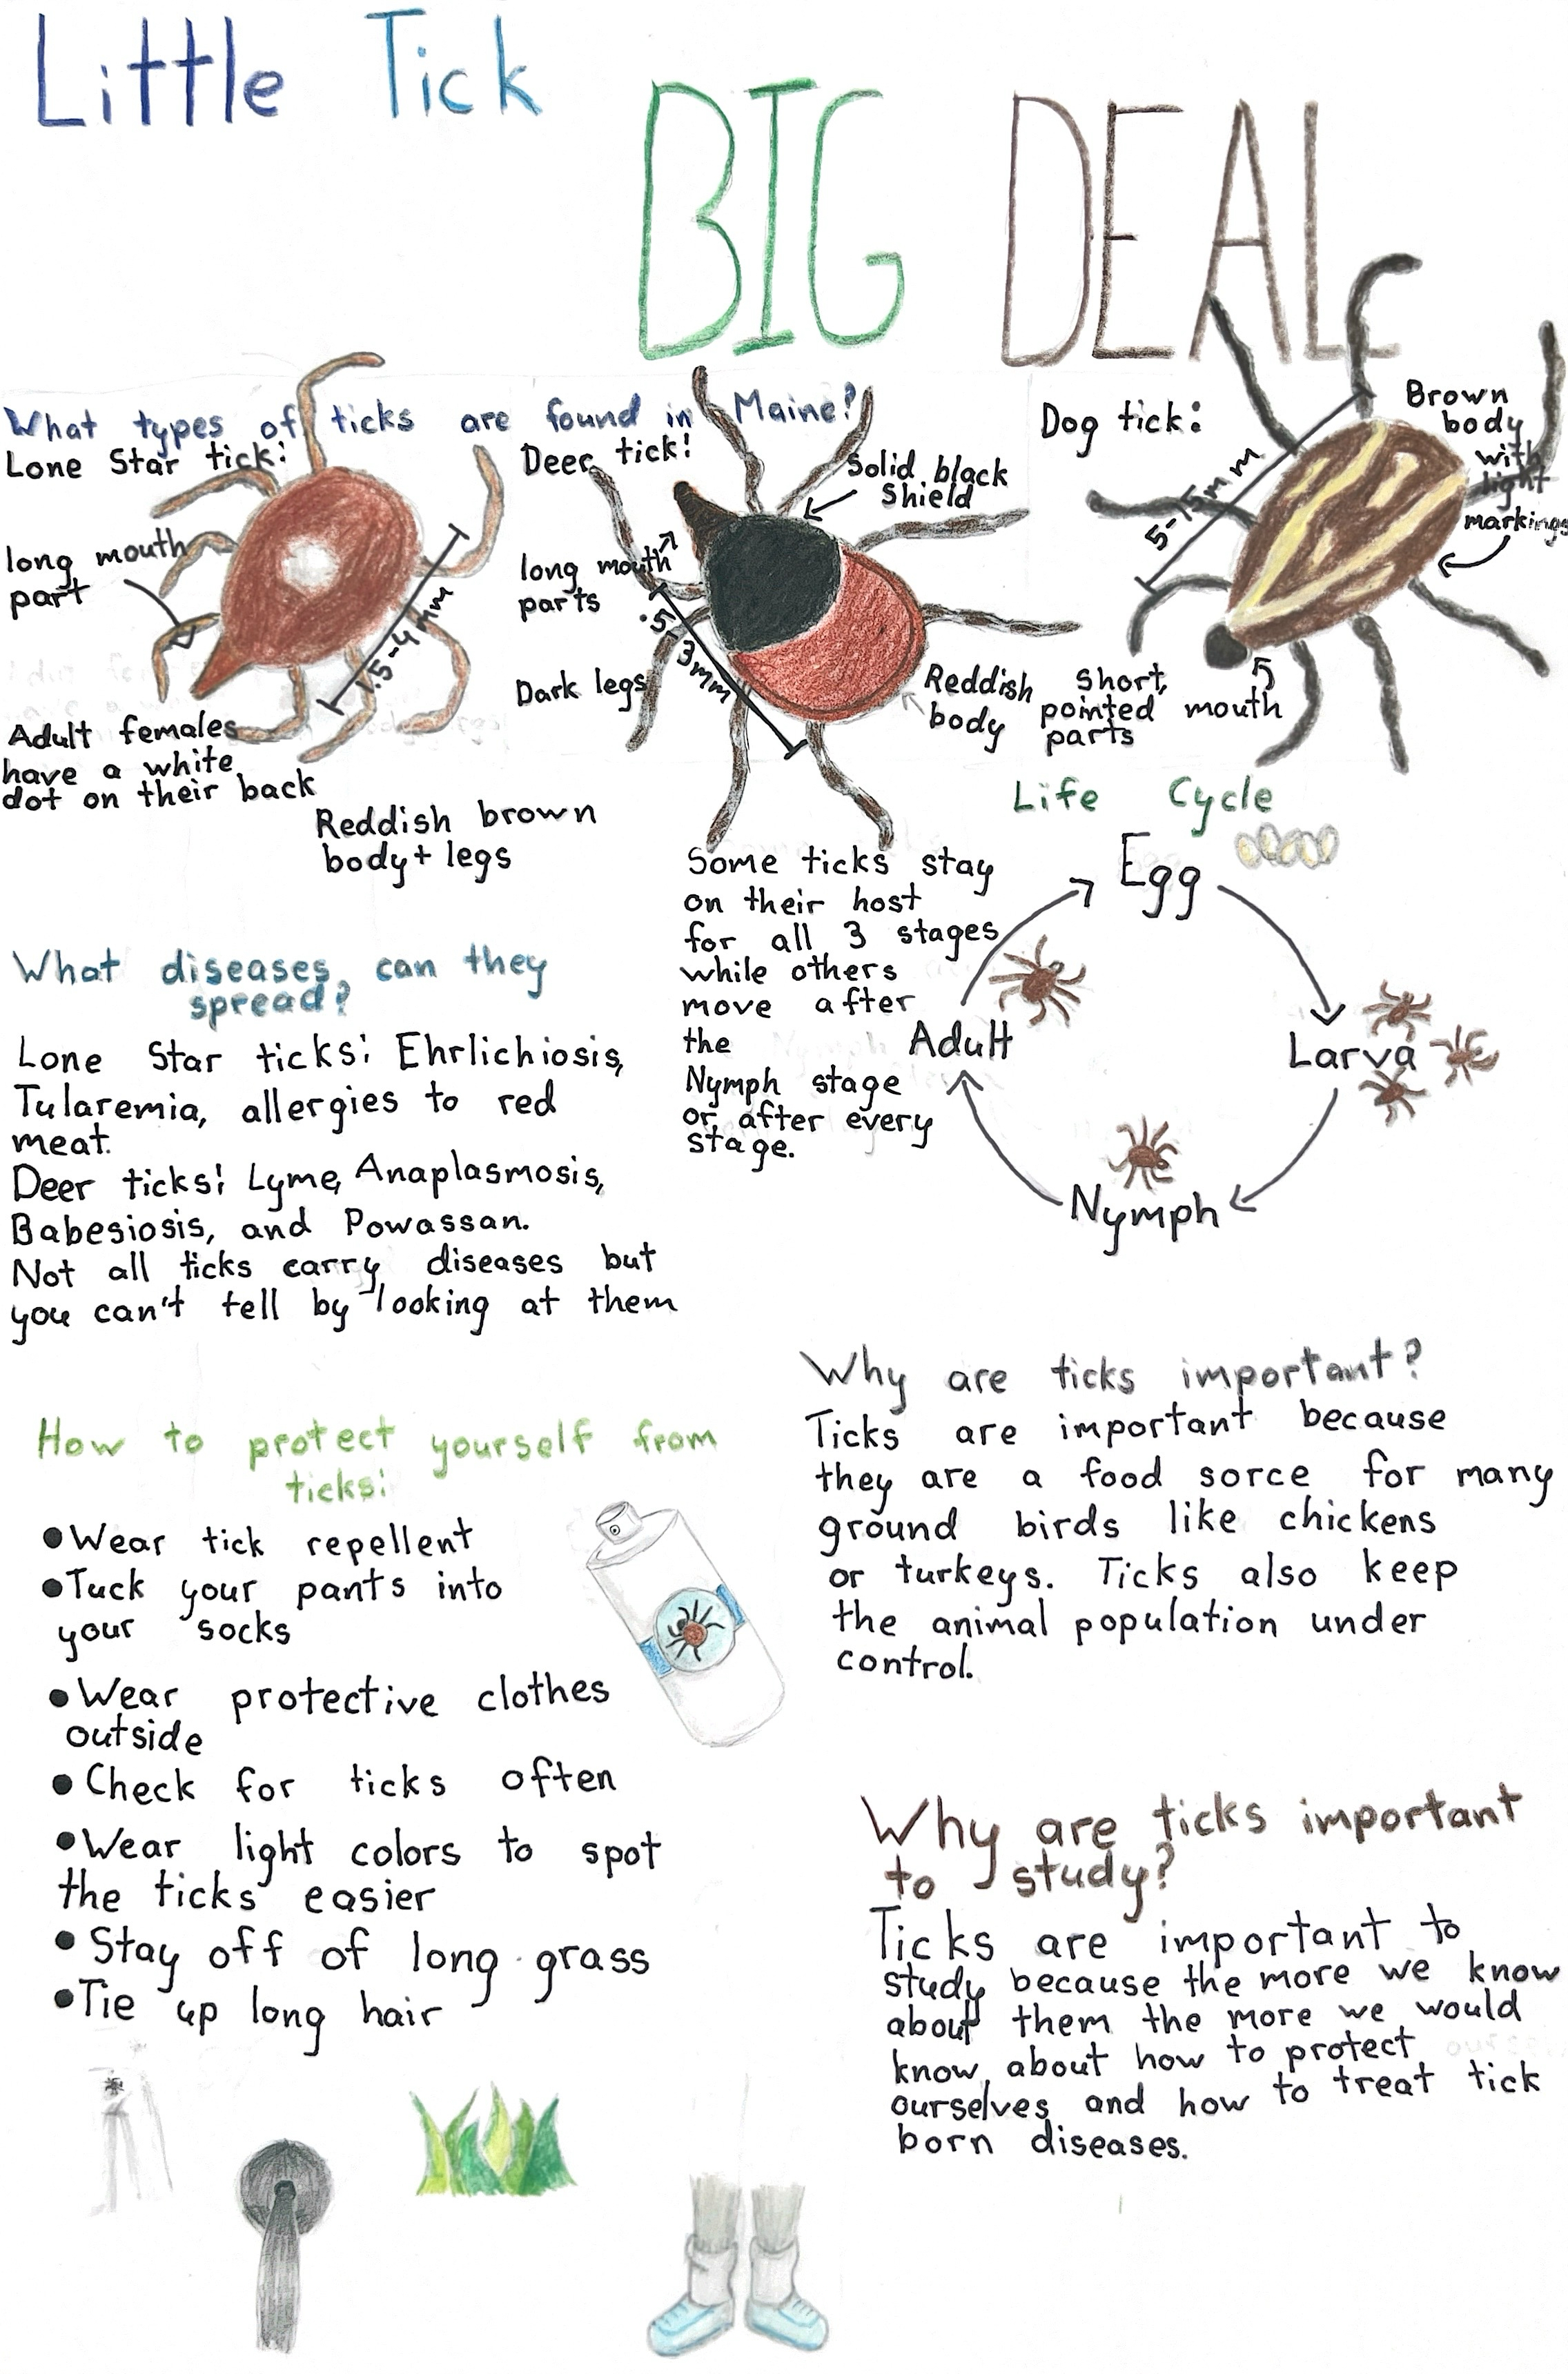 Little Tick
BIG DEAL
What types of ticks are found in Maine?
Lone Star tick:
long mouth
part
1.5-4mm
Adult females
have a white
dot on their back
Reddish brown
body + legs
Deer tick:
Solid black
shield
long mouth
parts
.5-3mm
Dark legs
Reddish
body
Dog tick:
Brown
body
with
light
markings
5-15mm
short,
pointed mouth
parts
Life Cycle
Egg
Larva
Nymph
Adult
Some ticks stay
on their host
for all 3 stages
while others
move after
the
Nymph stage
or after every
stage.
What diseases can they
spread?
Lone Star ticks: Ehrlichiosis,
Tularemia, allergies to red
meat.
Deer ticks: Lyme, Anaplasmosis,
Babesiosis, and Powassan.
Not all ticks carry diseases but
you can't tell by looking at them
How to protect yourself from
ticks:
•Wear tick repellent
•Tuck your pants into
your socks
•Wear protective clothes
outside
•Check for ticks often
•Wear light colors to spot
the ticks easier
•Stay off of long grass
•Tie up long hair
Why are ticks important?
Ticks are important because
they are a food sorce for many
ground birds like chickens
or turkeys. Ticks also keep
the animal population under
control.
Why are ticks important
to study?
Ticks are important to
study because the more we know
about them the more we would
know about how to protect
ourselves and how to treat tick
born diseases.